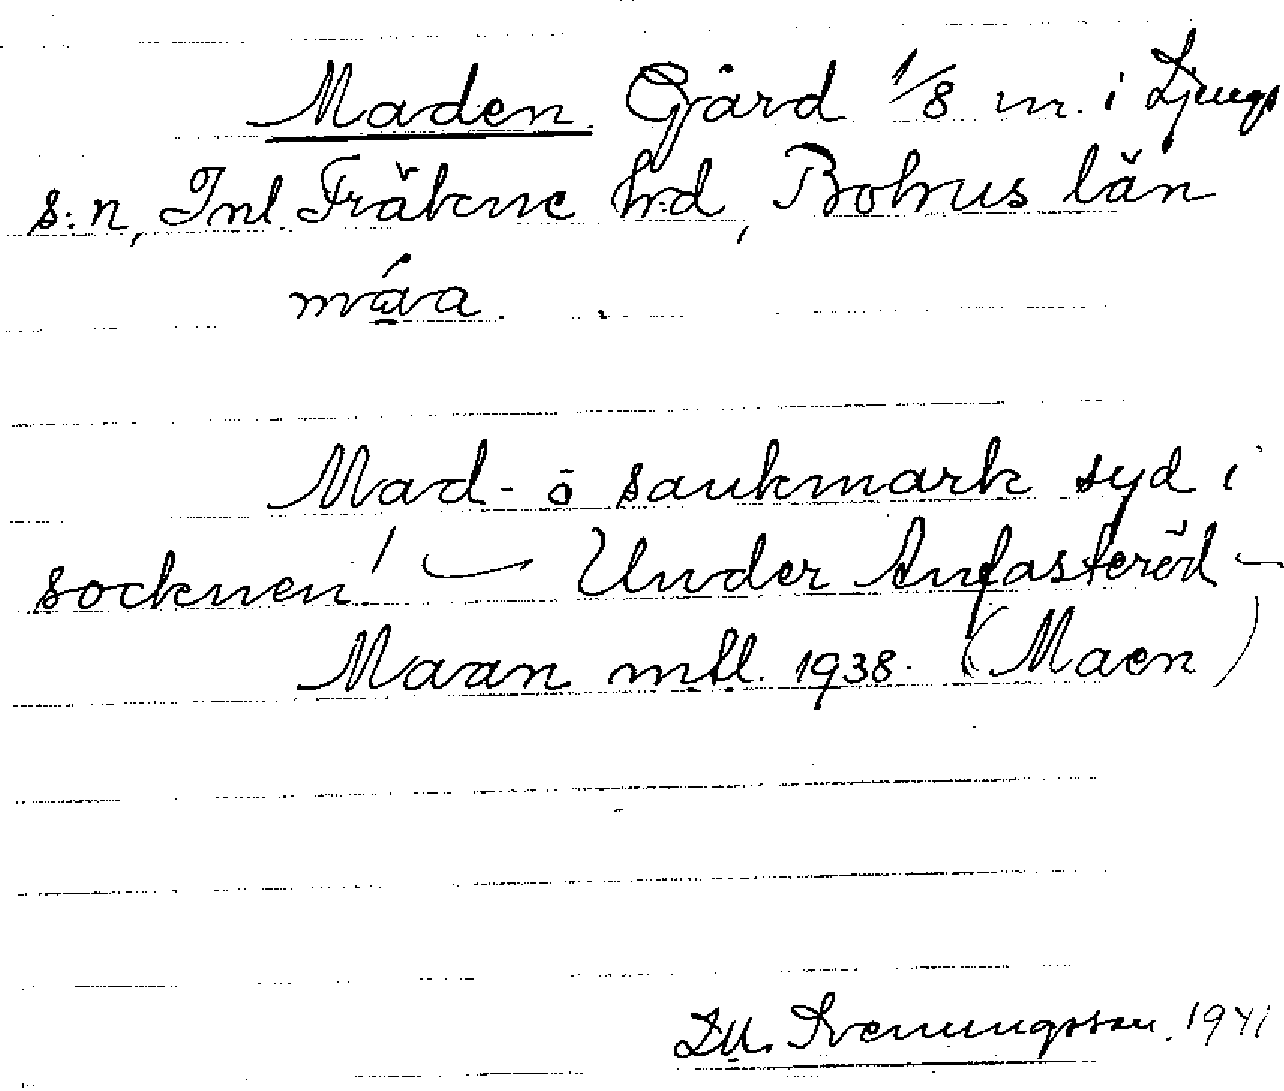 Maden. Gård 1/8 m. i Ljungs
s:n, Inl. Fräkne h:d, Bohus län
Mad- o sankmark syd i
socknen! — Under Anfasteröd —
Maran mfl. 1938. (Maen)
Svenungsson. 1941